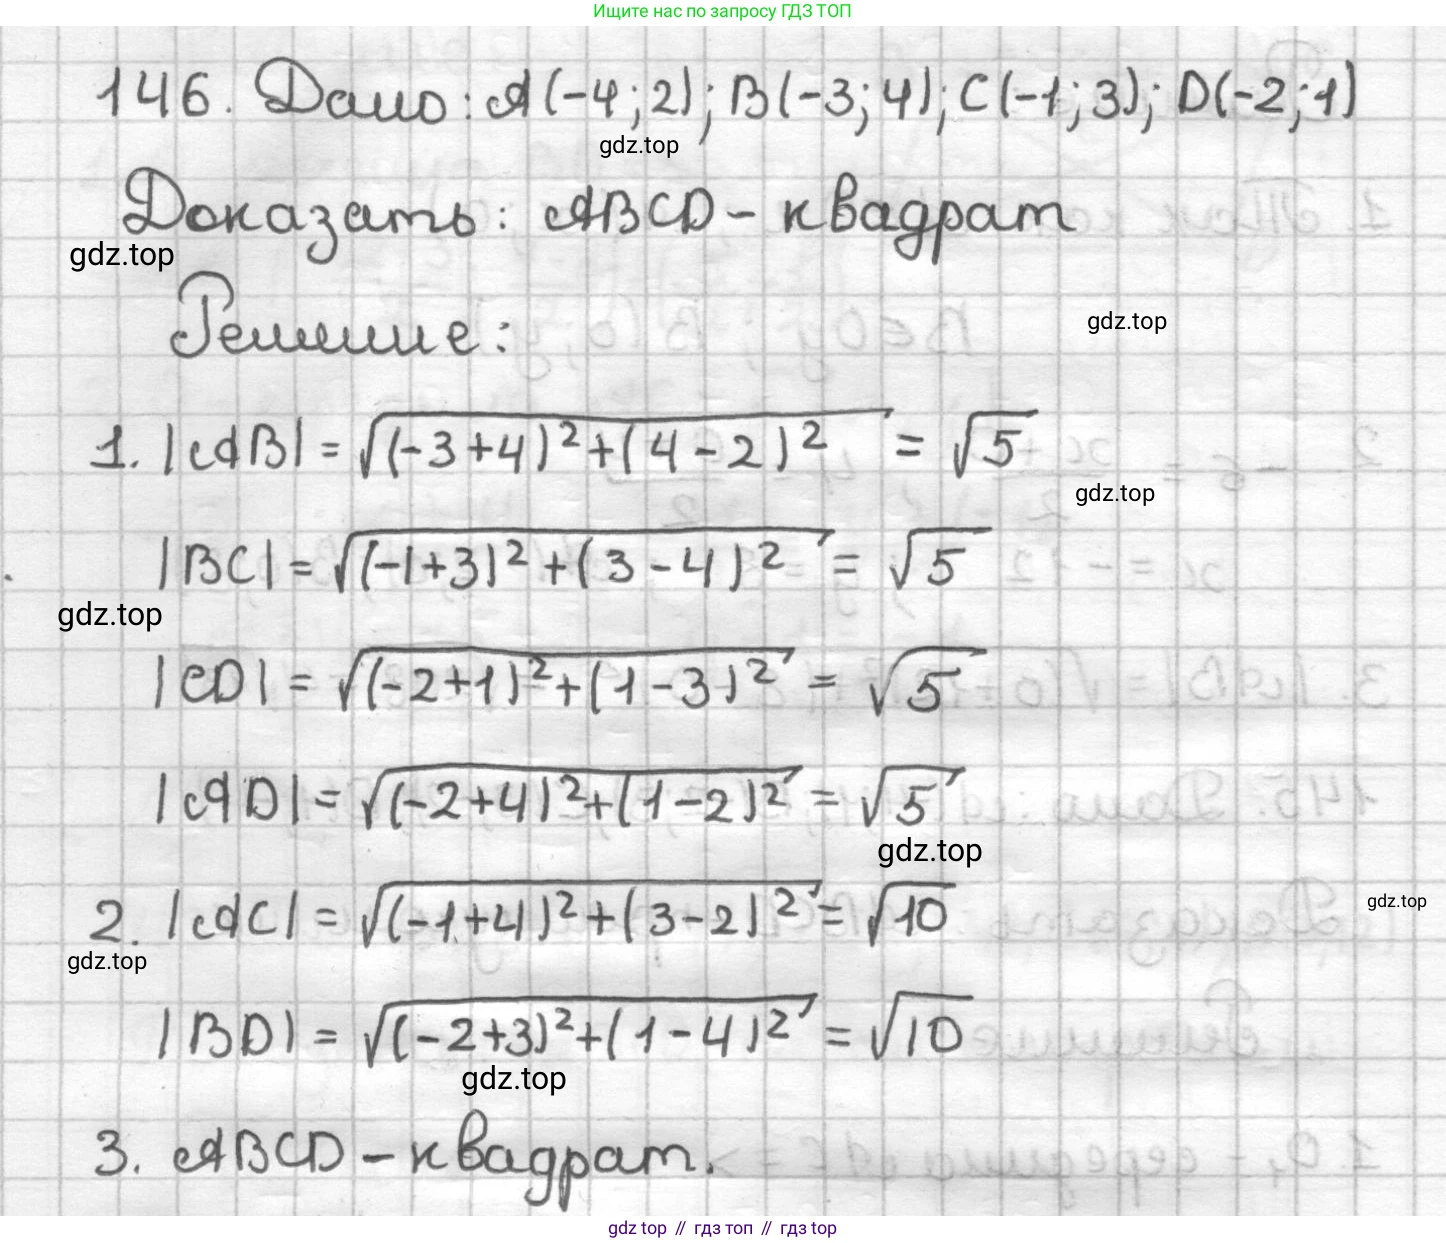 Ищите нас по запросу ГДЗ ТОП
146. Дано: A(-4;2); B(-3;4); C(-1;3); D(-2;1)
gdz.top
Доказать: ABCD - квадрат
gdz.top
Решение:
gdz.top
1. |AB| = √((-3+4)²+(4-2)²) = √5
gdz.top
|BC| = √((-1+3)²+(3-4)²) = √5
gdz.top
|CD| = √((-2+1)²+(1-3)²) = √5
|AD| = √((-2+4)²+(1-2)²) = √5
gdz.top
2. |AC| = √((-1+4)²+(3-2)²) = √10
gdz.top
gdz.top
|BD| = √((-2+3)²+(1-4)²) = √10
gdz.top
3. ABCD - квадрат.
gdz top // гдз топ // гдз top